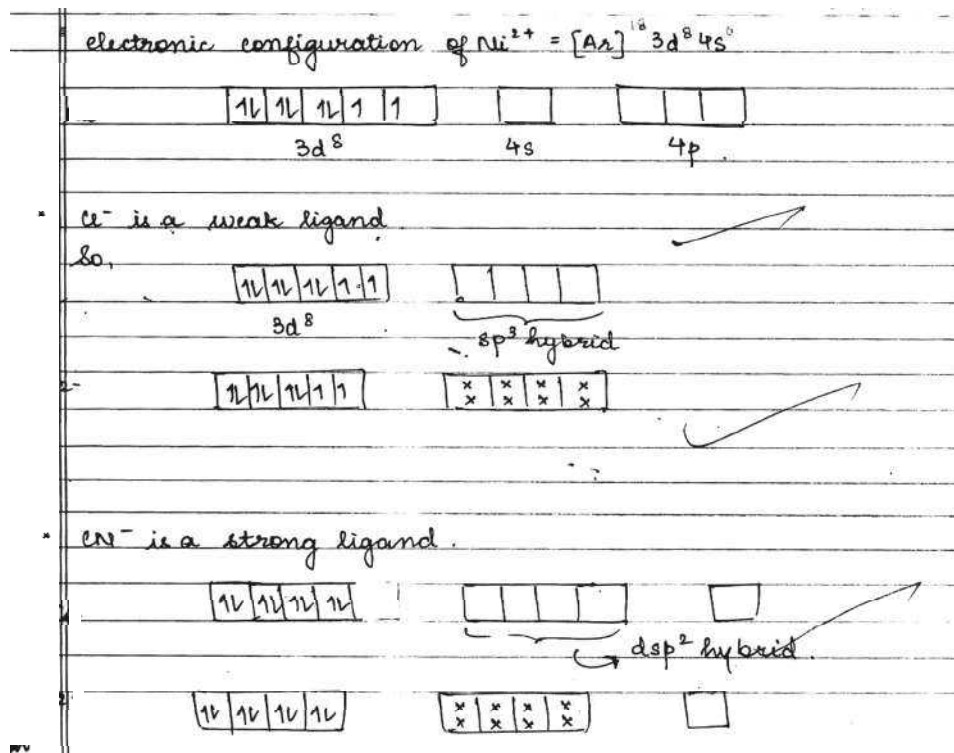 electronic configuration of Ni²⁺ = [Ar]¹⁸ 3d⁸ 4s⁰
1L 1L 1L 1 1
3d⁸ 4s 4p
* Cl⁻ is a weak ligand
So,
1L 1L 1L 1 1 1
3d⁸
sp³ hybrid
2-
1L 1L 1L 1 1 x x x x x x x x
* CN⁻ is a strong ligand.
1L 1L 1L 1L
dsp² hybrid.
1L 1L 1L 1L x x x x x x x x